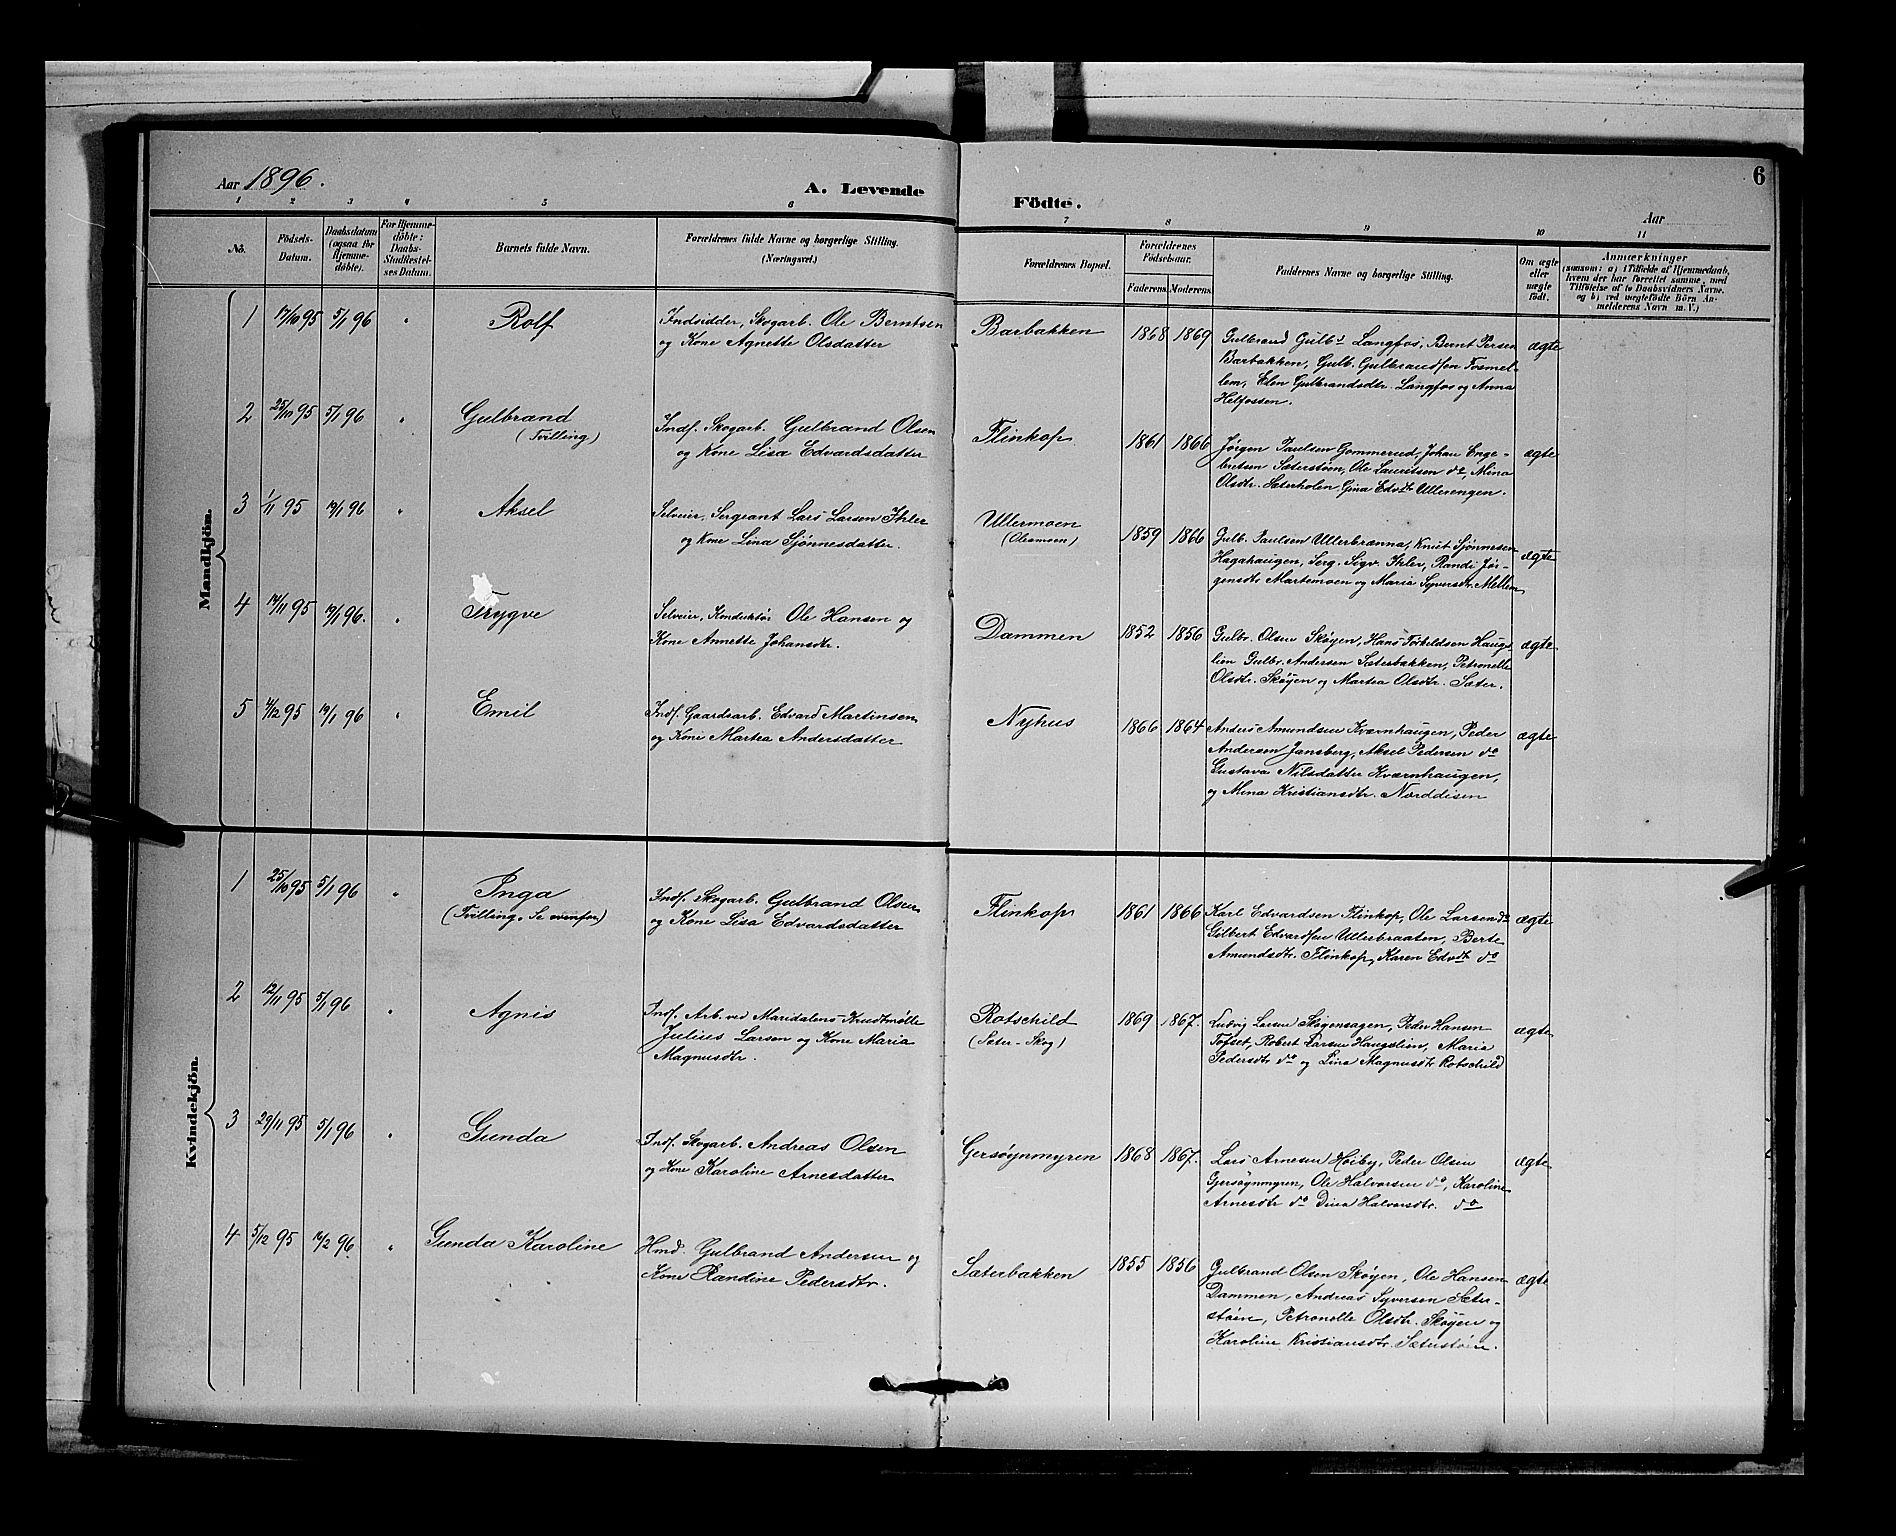 Aar 1896.
A. Levende Födte.
6
Aar
1 2 3 4 5 6 7 8 9 10 11
No.
Födsels-
Datum.
Daabsdatum
(ogsaa for
Hjemme-
döbte).
For Hjemme-
döbte:
Daabs-
Stadfæstel-
ses Datum.
Barnets fulde Navn.
Forældrenes fulde Navne og borgerlige Stilling.
(Næringsvei.)
Forældrenes Bopæl.
Forældrenes
Födselsaar.
Faderens. Moderens.
Faddernes Navne og borgerlige Stilling.
Om ægte
eller
uægte
födt.
Anmærkninger
(saasom: a) i Tilfælde af Hjemmedaab,
hvem der har forrettet samme, med
Tilföielse af to Daabsvidners Navne,
og b) ved uægtefödte Börn An-
melderens Navn m. V.)
Mandkjön.
1 17/10 95 5/1 96 " Rolf
Indsidder, Skogarb. Ole Berntsen
og Kone Agnette Olsdatter
Barbakken 1868 1869
Gulbrand Gulbs. Langfos, Bernt Persen
Barbakken, Gulb. Gulbrandsen Fosmel-
lem, Elen Gulbrandsdtr. Langfos og Anna
Helfossen.
ægte
2 25/10 95 5/1 96 " Gulbrand
(Tvilling)
Inds. Skogarb. Gulbrand Olsen
og Kone Lisa Edvardsdatter
Flinkop 1861 1866
Jørgen Paulsen Gommerud, Johan Enge-
bretsen Sæterstøen, Ole Lauritsen do, Mina
Olsdtr. Sæterholen, Gina Edvdtr Ullerengen.
ægte
3 1/11 95 19/1 96 " Aksel
Selveier, Sergeant Lars Larsen Ihler
og Kone Lina Sjønnesdatter.
Ullermoen
(Olesmoen)
1859 1866
Gulb. Paulsen Ullerbrænna, Knut Sjønnesen
Hagahaugen, Serg. Sigv. Ihler, Randi Jør-
gensdtr Martemoen og Maria Syversdtr. Mellem
ægte
4 14/11 95 19/1 96. " Trygve
Selveier, Konduktør Ole Hansen og
Kone Annette Johansdtr.
Dammen 1852 1856
Gulbr. Olsen Skøyen, Hans Torkildsen Haugs-
lien Gulbr. Andersen Sæterbakken, Petronelle
Olsdtr. Skøyen og Martea Olsdtr. Sæter.
ægte
5 4/12 95 19/1 96 " Emil
Inds. Gaardsarb. Edvard Martinsen
og Kone Martea Andersdatter
Nyhus 1866 1864
Anders Amundsen Kværnhaugen, Peder
Andersen Jansberg, Aksel Pedersen do
Gustava Nilsdatter Kværnhaugen,
og Mina Kristiansdtr. Norddisen
ægte
Kvindekjön.
1 25/10 95 5/1 96 " Inga
(Tvilling. Se ovenfor)
Inds. Skogarb. Gulbrand Olsen
og Kone Lisa Edvardsdatter
Flinkop 1861 1866
Karl Edvardsen Flinkop, Ole Larsen do
Gilbert Edvardsen Ullerbraaten, Berte
Amundsdtr. Flinkop, Karen Edvdtr do
ægte
2 12/11 95 5/1 96 " Agnis
Inds. Arb. ved Maridalens Krudtmølle
Julius Larsen og Kone Maria
Magnusdtr.
Rotschild
(Sæter-Skog)
1869 1867.
Ludvig Larsen Skøgensagen, Peder Hansen
Tofset, Robert Larsen Haugslien, Maria
Pedersdtr do og Lina Magnusdtr Rotschild
ægte
3 29/11 95 5/1 96 " Gunda
Inds. Skogarb. Andreas Olsen
og Kone Karoline Arnesdatter
Gersøynmyren 1868 1867.
Lars Arnesen Høiby, Peder Olsen
Gersøynmyren, Ole Halvorsen do, Karoline
Arnesdtr do Dina Halvorsdtr. do
ægte
4 5/12 95 16/2 96. " Gunda Karoline
Hmd. Gulbrand Andersen og
Kone Randine Pedersdtr.
Sæterbakken 1855 1856
Gulbrand Olsen Skøyen, Ole Hansen
Dammen, Andreas Syversen Sæter-
støen, Petronelle Olsdtr. Skøyen og
Karoline Kristiansdtr. Sæterstøen.
ægte